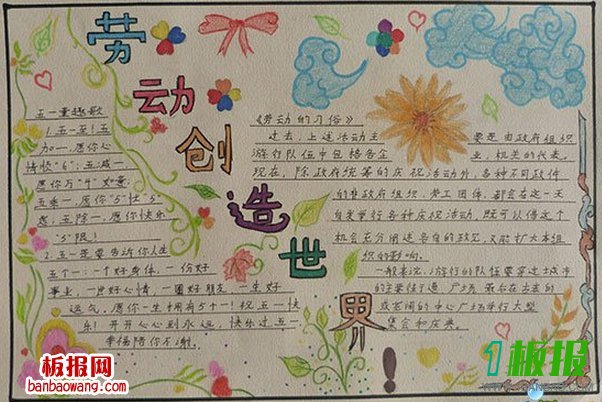 劳动创造世界!
五一童趣歌
1.五一至!五
加一,愿你心
情愉"6";五减一
愿你万"4"如意;
五乘一,愿你"5"忧"5"
虑;五除一,愿你快乐
"5"限!
2.五一是要告诉你人生
五个一:一个好身体,一份好
事业,一片好心情,一圈好朋友,一生好
运气。愿你一生拥有5个一!祝五一快
乐!开开心心到永远,快乐过五一
幸福陪你不测。
《劳动的习俗》
过去,上述活动主要是由政府组织
游行队伍中包括各企业,机关的代表。
现在,除政府统筹的庆祝活动外,各种不同政体
的非政府组织,劳工团体,都会在这一天
自发举行各种庆祝活动,既可以借这个
机会充分阐述各自的政见,又能扩大本组
织的影响。
一般来说,游行的队伍要穿过城市
的主要街道,广场,最后在古老的
或宽阔的中心广场举行大型
集会和庆典。
板报网
banbaowang.com
1板报